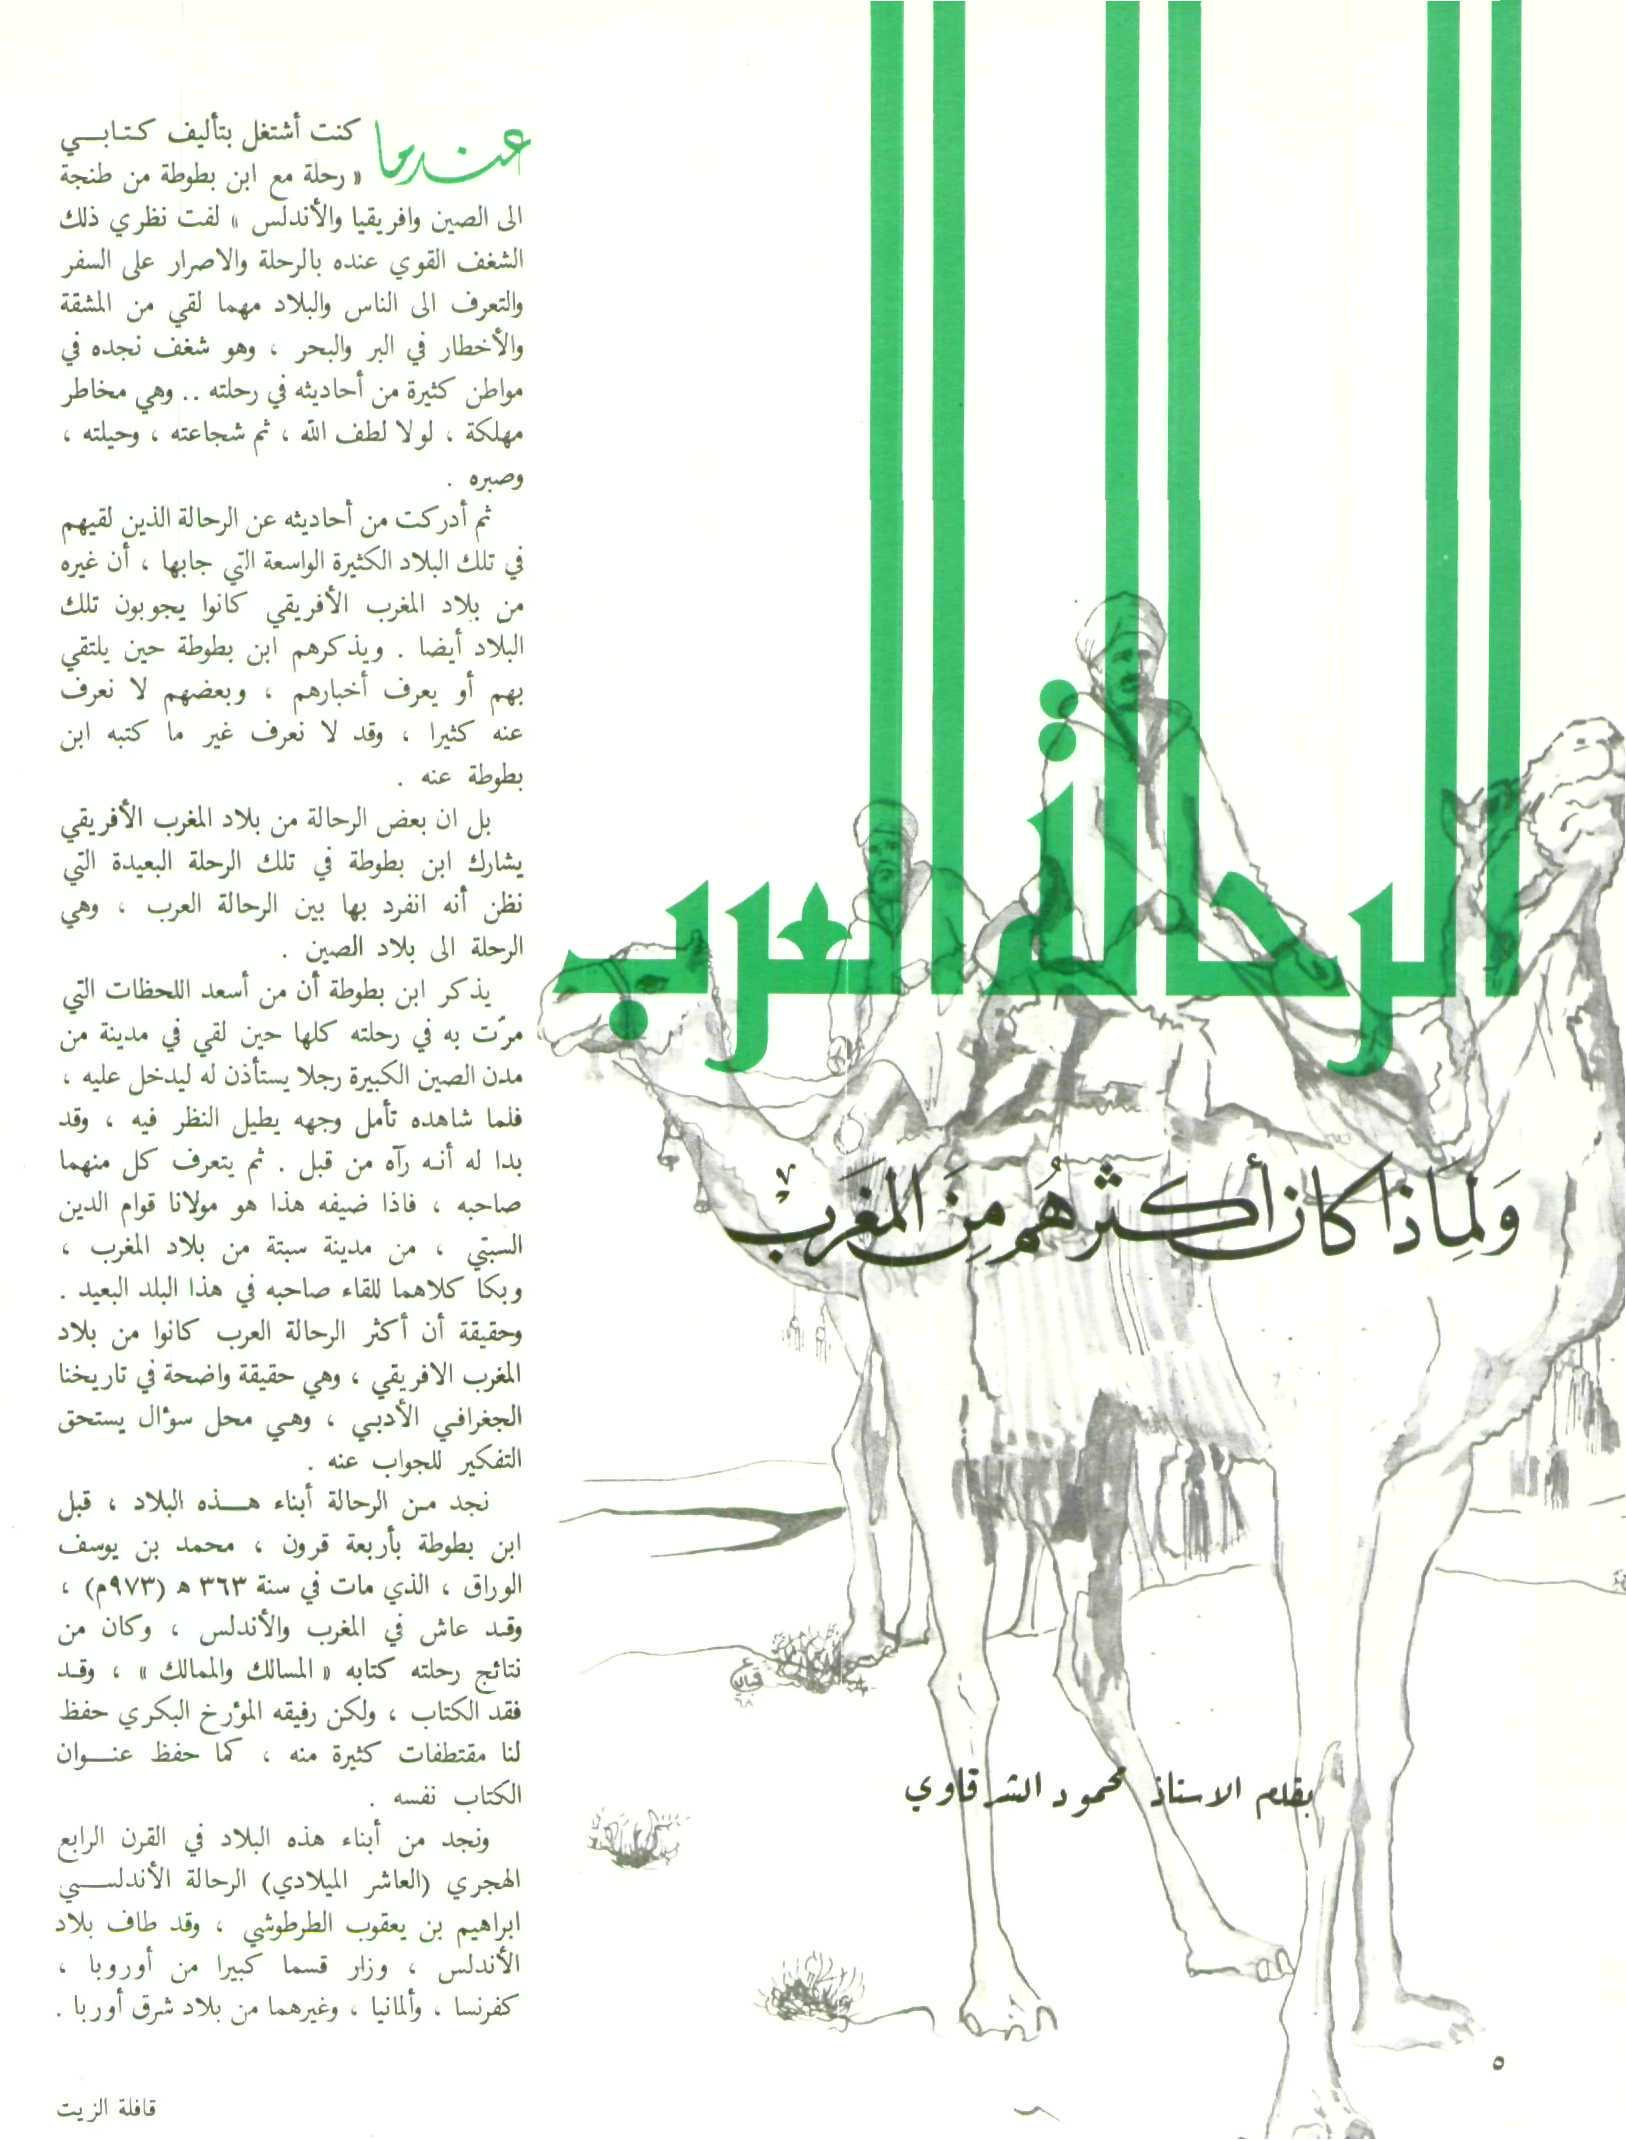 الرحالة العرب
وَلِمَاذا كان أكثرهُم مِنَ المغَربْ ؟
بقلم الاستاذ محمود الشرقاوي
عندما كنت أشتغل بتأليف كتابي
« رحلة مع ابن بطوطة من طنجة
الى الصين وافريقيا والأندلس » لفت نظري ذلك
الشغف القوي عنده بالرحلة والاصرار على السفر
والتعرف الى الناس والبلاد مهما لقي من المشقة
والأخطار في البر والبحر ، وهو شغف نجده في
مواطن كثيرة من أحاديثه في رحلته .. وهي مخاطر
مهلكة ، لولا لطف الله ، ثم شجاعته ، وحيلته ،
وصبره .
ثم أدركت من أحاديثه عن الرحالة الذين لقيهم
في تلك البلاد الكثيرة الواسعة التي جابها ، أن غيره
من بلاد المغرب الأفريقي كانوا يجوبون تلك
البلاد أيضا . ويذكرهم ابن بطوطة حين يلتقي
بهم أو يعرف أخبارهم ، وبعضهم لا نعرف
عنه كثيرا ، وقد لا نعرف غير ما كتبه ابن
بطوطة عنه .
بل ان بعض الرحالة من بلاد المغرب الأفريقي
يشارك ابن بطوطة في تلك الرحلة البعيدة التي
نظن أنه انفرد بها بين الرحالة العرب ، وهي
الرحلة الى بلاد الصين .
يذكر ابن بطوطة أن من أسعد اللحظات التي
مرّت به في رحلته كلها حين لقي في مدينة من
مدن الصين الكبيرة رجلا يستأذن له ليدخل عليه ،
فلما شاهده تأمل وجهه يطيل النظر فيه ، وقد
بدا له أنه رآه من قبل . ثم يتعرف كل منهما
صاحبه ، فاذا ضيفه هذا هو مولانا قوام الدين
السبتي ، من مدينة سبتة من بلاد المغرب ،
وبكا كلاهما للقاء صاحبه في هذا البلد البعيد .
وحقيقة أن أكثر الرحالة العرب كانوا من بلاد
المغرب الافريقي ، وهي حقيقة واضحة في تاريخنا
الجغرافي الأدبي ، وهي محل سؤال يستحق
التفكير للجواب عنه .
نجد من الرحالة أبناء هذه البلاد ، قبل
ابن بطوطة بأربعة قرون ، محمد بن يوسف
الوراق ، الذي مات في سنة ٣٦٣ ه (٩٧٣م) ،
وقد عاش في المغرب والأندلس ، وكان من
نتائج رحلته كتابه « المسالك والممالك » ، وقد
فقد الكتاب ، ولكن رفيقه المؤرخ البكري حفظ
لنا مقتطفات كثيرة منه ، كما حفظ عنوان
الكتاب نفسه .
ونجد من أبناء هذه البلاد في القرن الرابع
الهجري (العاشر الميلادي) الرحالة الأندلسي
ابراهيم بن يعقوب الطرطوشي ، وقد طاف بلاد
الأندلس ، وزار قسما كبيرا من أوروبا ،
كفرنسا ، وألمانيا ، وغيرهما من بلاد شرق أوربا .
٥
قافلة الزيت